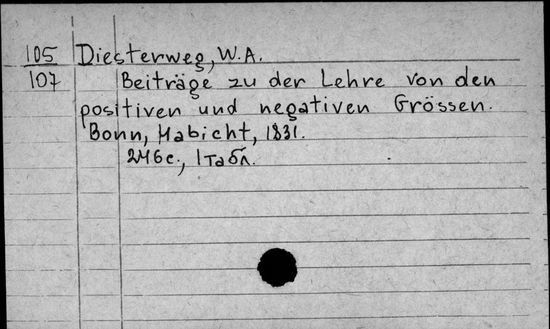 105 Diesterweg, W.A.
107 Beiträge zu der Lehre von den
positiven und negativen Grössen.
Bonn, Habicht, 1831.
246с., 1 табл.